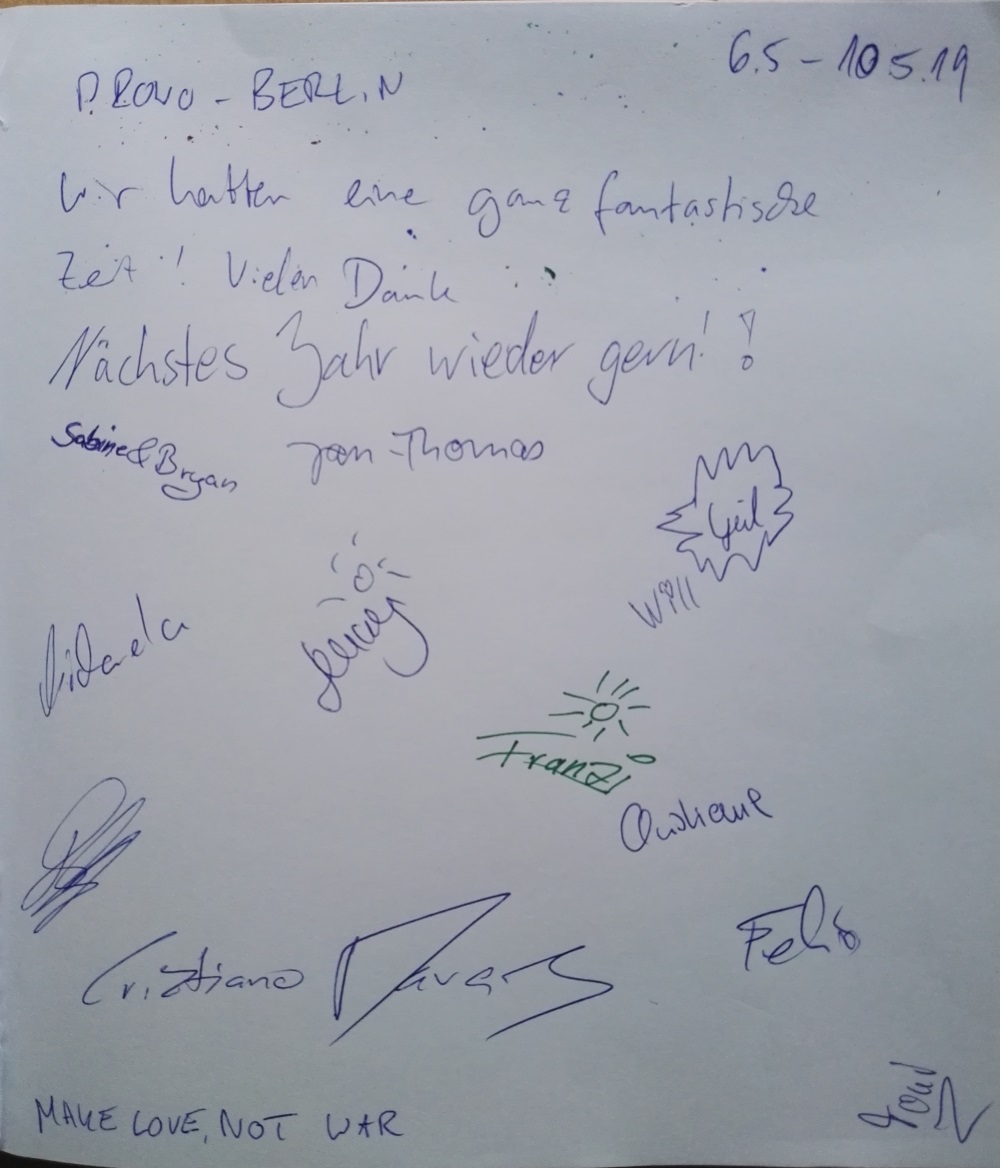 PROVO - BERLIN
6.5 - 10.5.19
Wir hatten eine ganz fantastische
Zeit! Vielen Dank
Nächstes Jahr wieder gern!!
Sabine & Bryan
Jan-Thomas
Geil
Will
Franzi
Christiane
Cristiano
Felix
MAKE LOVE, NOT WAR